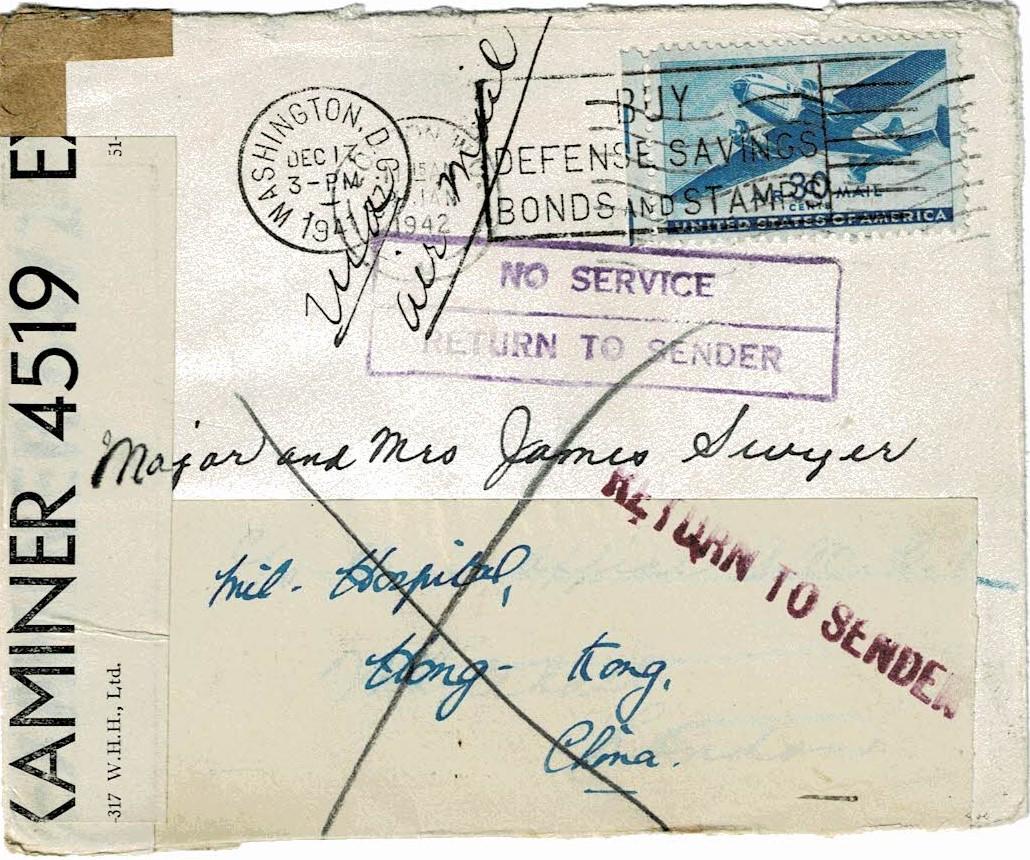 WASHINGTON, D.C.
DEC 17
3-PM
1941
JAN
1942
BUY
DEFENSE SAVINGS
BONDS AND STAMPS
30
CENTS
AIR MAIL
UNITED STATES OF AMERICA
Via
air mail
NO SERVICE
RETURN TO SENDER
Major and Mrs James Swyer
RETURN TO SENDER
Mil. Hospital,
Hong-Kong,
China.
EXAMINER 4519
51-
-317 W.H.H., Ltd.